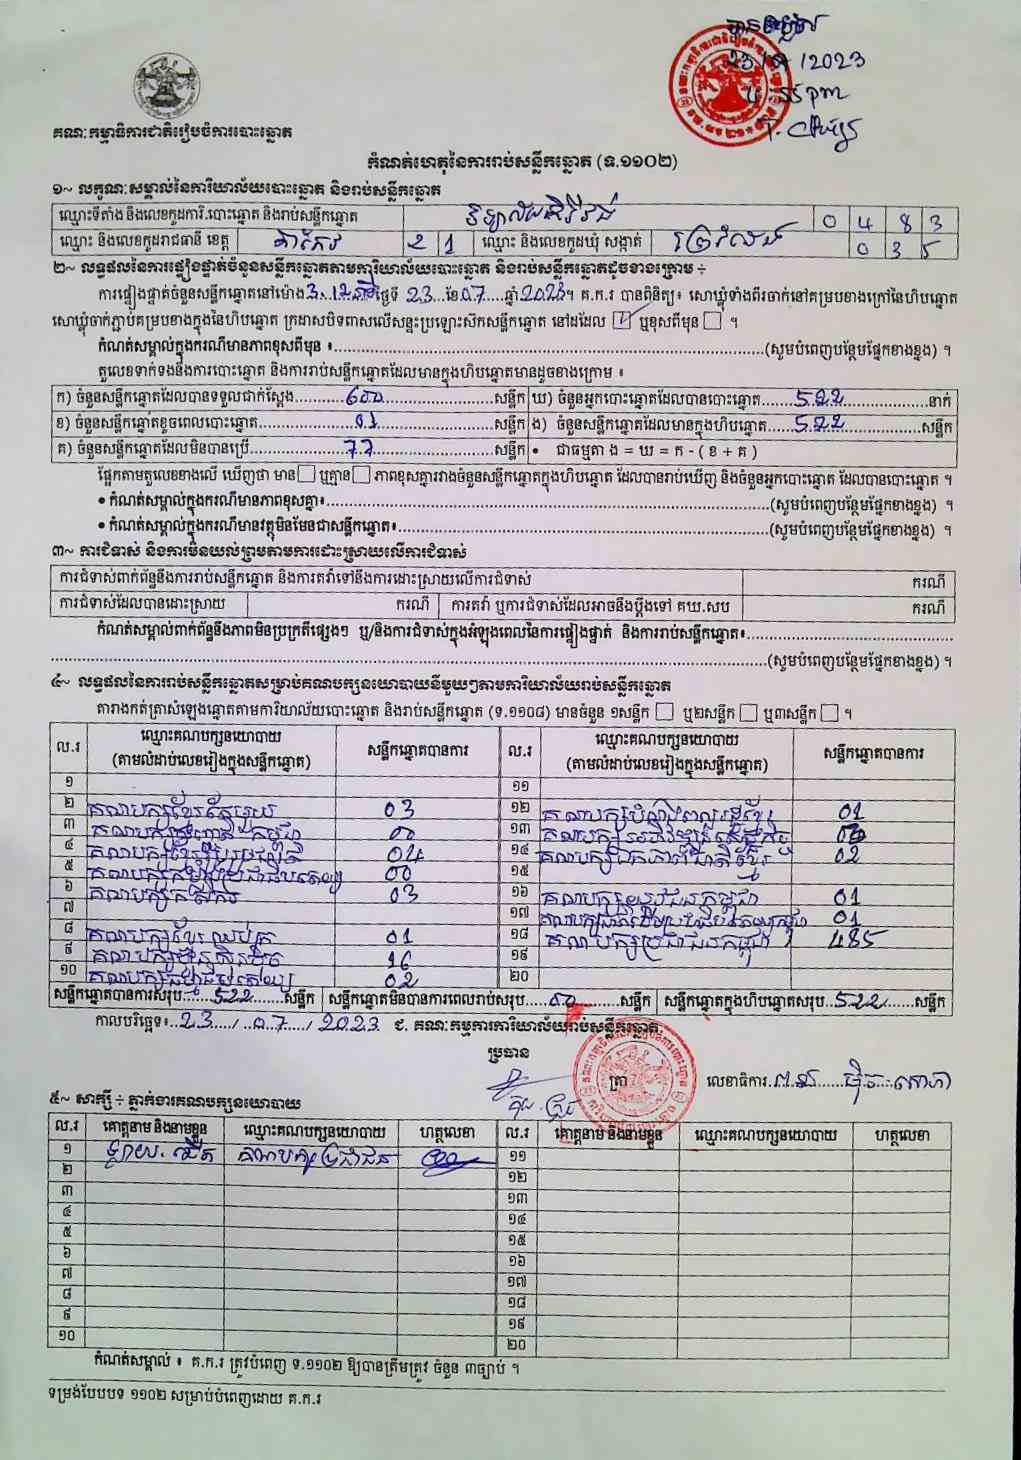 បានទទួល
23/7/2023
គណៈកម្មាធិការជាតិរៀបចំការបោះឆ្នោត
កំណត់ហេតុនៃការរាប់សន្លឹកឆ្នោត (ទ.១១០២)
១~ លក្ខណៈសម្គាល់នៃការិយាល័យបោះឆ្នោត និងរាប់សន្លឹកឆ្នោត
ឈ្មោះទីតាំង និងលេខកូដការិ.បោះឆ្នោត និងរាប់សន្លឹកឆ្នោត 0 4 8 3
ឈ្មោះ និងលេខកូដរាជធានី ខេត្ត តាកែវ 2 1 ឈ្មោះ និងលេខកូដឃុំ សង្កាត់ 0 3 5
២~ លទ្ធផលនៃការផ្ទៀងផ្ទាត់ចំនួនសន្លឹកឆ្នោតតាមការិយាល័យបោះឆ្នោត និងរាប់សន្លឹកឆ្នោតដូចខាងក្រោម ÷
ការផ្ទៀងផ្ទាត់ចំនួនសន្លឹកឆ្នោតនៅម៉ោង 3:12 នាទី ថ្ងៃទី 23 ខែ 07 ឆ្នាំ 2023 ។ គ.ក.រ បានពិនិត្យ៖ សោឃ្លុំទាំងពីរចាក់នៅគម្របខាងក្រៅនៃហិបឆ្នោត
សោឃ្លុំចាក់ភ្ជាប់គម្របខាងក្នុងនៃហិបឆ្នោត ក្រដាសបិទពាសលើសន្ទះប្រឡោះស៊កសន្លឹកឆ្នោត នៅដដែល ☑ ឬខុសពីមុន ☐ ។
កំណត់សម្គាល់ក្នុងករណីមានភាពខុសពីមុន ៖ (សូមបំពេញបន្ថែមផ្នែកខាងខ្នង) ។
តួលេខទាក់ទងនឹងការបោះឆ្នោត និងការរាប់សន្លឹកឆ្នោតដែលមានក្នុងហិបឆ្នោតមានដូចខាងក្រោម ៖
ក) ចំនួនសន្លឹកឆ្នោតដែលបានទទួលជាក់ស្តែង 600 សន្លឹក ឃ) ចំនួនអ្នកបោះឆ្នោតដែលបានបោះឆ្នោត 522 នាក់
ខ) ចំនួនសន្លឹកឆ្នោតខូចពេលបោះឆ្នោត 01 សន្លឹក ង) ចំនួនសន្លឹកឆ្នោតដែលមានក្នុងហិបឆ្នោត 522 សន្លឹក
គ) ចំនួនសន្លឹកឆ្នោតដែលមិនបានប្រើ 77 សន្លឹក • ជាធម្មតា ង = ឃ = ក - ( ខ + គ )
ផ្អែកតាមតួលេខខាងលើ ឃើញថា មាន ☐ ឬគ្មាន ☐ ភាពខុសគ្នារវាងចំនួនសន្លឹកឆ្នោតក្នុងហិបឆ្នោត ដែលបានរាប់ឃើញ និងចំនួនអ្នកបោះឆ្នោត ដែលបានបោះឆ្នោត ។
• កំណត់សម្គាល់ក្នុងករណីមានភាពខុសគ្នា៖ (សូមបំពេញបន្ថែមផ្នែកខាងខ្នង) ។
• កំណត់សម្គាល់ក្នុងករណីមានវត្ថុមិនមែនជាសន្លឹកឆ្នោត៖ (សូមបំពេញបន្ថែមផ្នែកខាងខ្នង) ។
៣~ ការជំទាស់ និងការមិនយល់ព្រមតាមការដោះស្រាយលើការជំទាស់
ការជំទាស់ពាក់ព័ន្ធនឹងការរាប់សន្លឹកឆ្នោត និងការតវ៉ាទៅនឹងការដោះស្រាយលើការជំទាស់ ករណី
ការជំទាស់ដែលបានដោះស្រាយ ករណី ការតវ៉ា ឬការជំទាស់ដែលអាចនឹងប្តឹងទៅ គឃ.សប ករណី
កំណត់សម្គាល់ពាក់ព័ន្ធនឹងភាពមិនប្រក្រតីផ្សេងៗ ឬ/និងការជំទាស់ក្នុងអំឡុងពេលនៃការផ្ទៀងផ្ទាត់ និងការរាប់សន្លឹកឆ្នោត៖
(សូមបំពេញបន្ថែមផ្នែកខាងខ្នង) ។
៤~ លទ្ធផលនៃការរាប់សន្លឹកឆ្នោតសម្រាប់គណបក្សនយោបាយនីមួយៗតាមការិយាល័យរាប់សន្លឹកឆ្នោត
តារាងកត់ត្រាសំឡេងឆ្នោតតាមការិយាល័យបោះឆ្នោត និងរាប់សន្លឹកឆ្នោត (ទ.១១០៨) មានចំនួន ១សន្លឹក ☐ ឬ២សន្លឹក ☐ ឬ៣សន្លឹក ☐ ។
ល.រ ឈ្មោះគណបក្សនយោបាយ (តាមលំដាប់លេខរៀងក្នុងសន្លឹកឆ្នោត) សន្លឹកឆ្នោតបានការ ល.រ ឈ្មោះគណបក្សនយោបាយ (តាមលំដាប់លេខរៀងក្នុងសន្លឹកឆ្នោត) សន្លឹកឆ្នោតបានការ
១ ១១
២ គណបក្សខ្មែរតែមួយ 03 ១២ 01
៣ 00 ១៣
៤ 04 ១៤ គណបក្សឯកភាពជាតិខ្មែរ 02
៥ 00 ១៥
៦ គណបក្សកសិករ 03 ១៦ គណបក្សយុវជនកម្ពុជា 01
៧ ១៧ 01
៨ គណបក្សខ្មែរឈប់ក្រ 01 ១៨ គណបក្សប្រជាជនកម្ពុជា 485
៩ 16 ១៩
១០ គណបក្សធម្មាធិបតេយ្យ 02 ២០
សន្លឹកឆ្នោតបានការសរុប 522 សន្លឹក សន្លឹកឆ្នោតមិនបានការពេលរាប់សរុប 00 សន្លឹក សន្លឹកឆ្នោតក្នុងហិបឆ្នោតសរុប 522 សន្លឹក
កាលបរិច្ឆេទ៖ 23 / 07 / 2023 ជ. គណៈកម្មការការិយាល័យរាប់សន្លឹកឆ្នោត
ប្រធាន
ត្រា លេខាធិការ
៥~ សាក្សី ÷ ភ្នាក់ងារគណបក្សនយោបាយ
ល.រ គោត្តនាម និងនាមខ្លួន ឈ្មោះគណបក្សនយោបាយ ហត្ថលេខា ល.រ គោត្តនាម និងនាមខ្លួន ឈ្មោះគណបក្សនយោបាយ ហត្ថលេខា
១ គណបក្សប្រជាជន ១១
២ ១២
៣ ១៣
៤ ១៤
៥ ១៥
៦ ១៦
៧ ១៧
៨ ១៨
៩ ១៩
១០ ២០
កំណត់សម្គាល់ ៖ គ.ក.រ ត្រូវបំពេញ ទ.១១០២ ឱ្យបានត្រឹមត្រូវ ចំនួន ៣ច្បាប់ ។
ទម្រង់បែបបទ ១១០២ សម្រាប់បំពេញដោយ គ.ក.រ